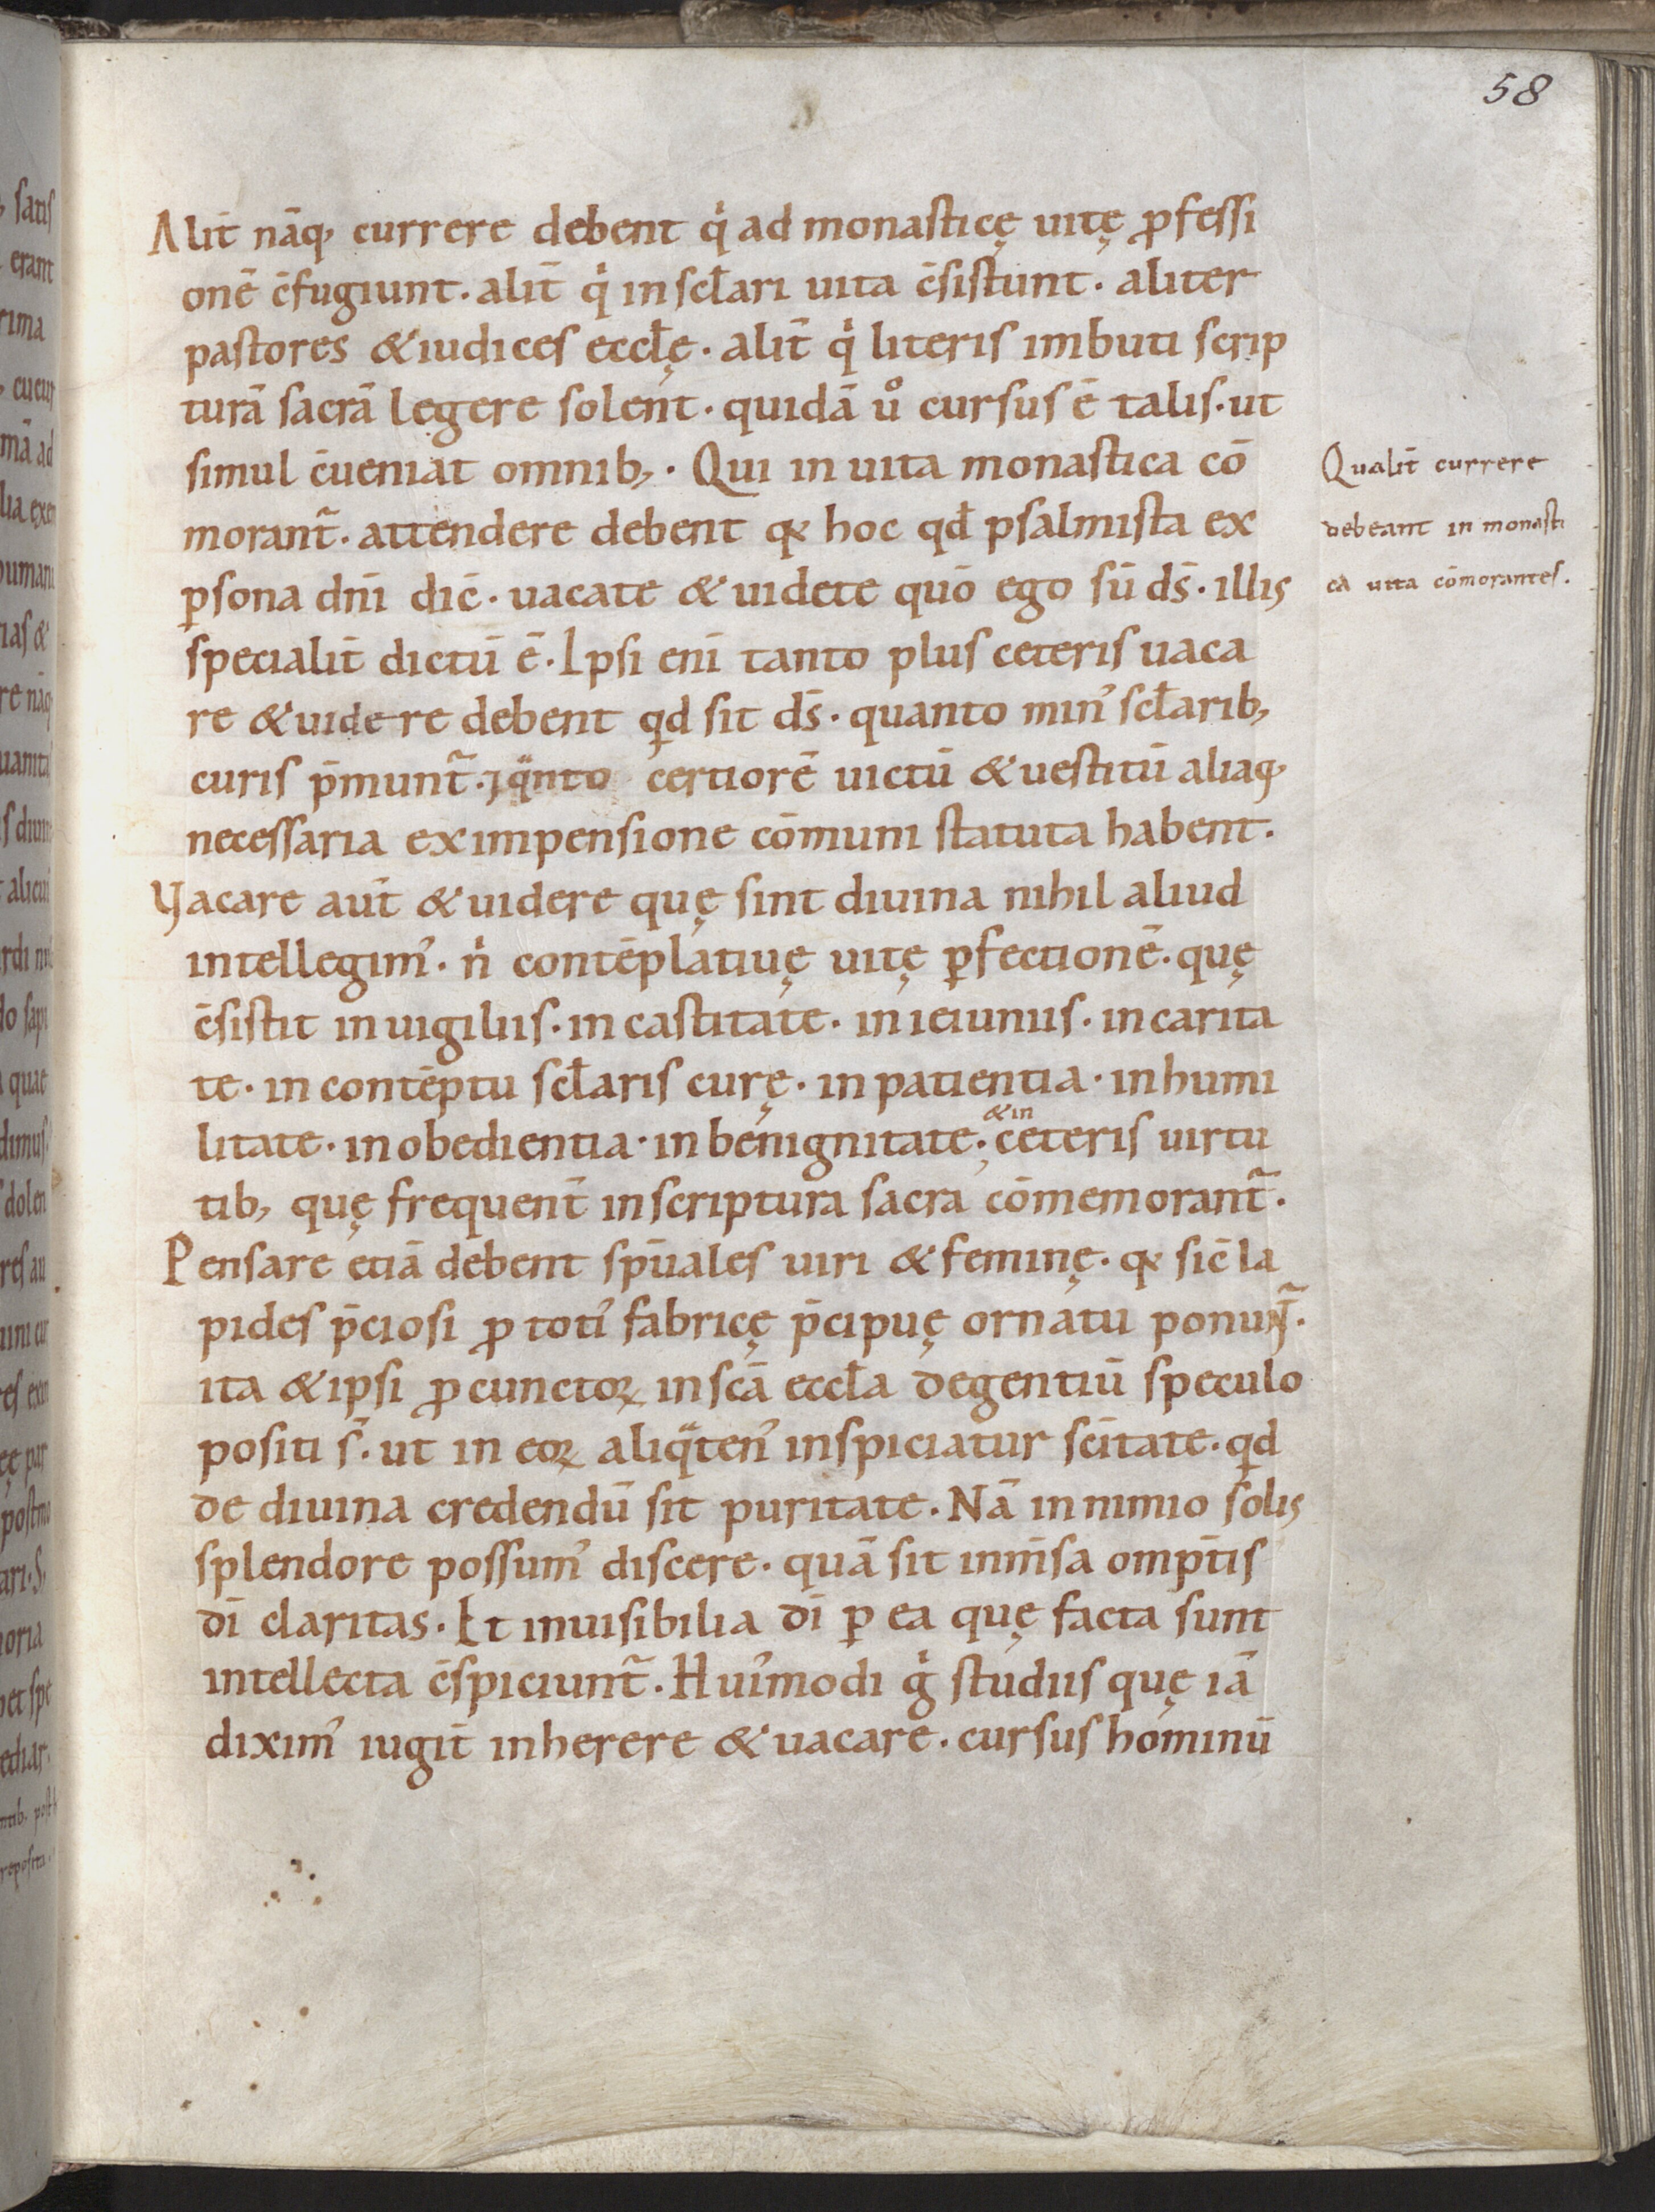 58
Alit̄ nāq, currere debent q̇ ad monasticę uitę ꝓfessi
onē c̄fugiunt. alit̄ q̇ in scƚari uita c̄sistunt. aliter
pastores & iudices eccƚę. alit̄ q̇ literis imbuti scrip
turā sacrā legere solent. quidā ů cursus ē talis. ut
simul c̄ueniat omnib,. Qui in uita monastica cō
morant̄. attendere debent qꝫ hoc qđ psalmista ex
ꝑsona dn̄i dic̄. uacate & uidete quō ego sū ds̄. illis
specialit̄ dictū ē. Ipsi enī tanto plus ceteris uaca
re & uidere debent qd sit ds̄. quanto min᾿ scƚarib,
curis p̄munt̄. ⁊ qͣnto certiorē uictū & uestitū aliaq,
necessaria ex impensione cōmuni statuta habent.
Vacare aut̄ & uidere quę sint diuina nihil aliud
intellegim᾿. n̍ contēplatiuę uitę ꝑfectionē. quę
c̄sistit in uigiliis. in castitate. in ieiuniis. in carita
te. in contēptu scƚaris curę. in patientia. in humi
&in
litate. in obedientia. in benignitate. ceteris uirtu
tib, quę frequent̄ in scriptura sacra cōmemorant̄.
Pensare etiā debent sp̄uales uiri & feminę. qꝫ sic̄ la
pides p̄ciosi ꝓ toti᾿ fabricę p̄cipuę ornatu ponunt̄.
ita & ipsi ꝓ cunctoꝝ in scā eccƚa degentiū speculo
positi s̄. ut in eoꝝ aliqͣten᾿ inspiciatur scītate. qd
de diuina credendū sit puritate. Nā in nimio solis
splendore possum᾿ discere. quā sit inm̄sa omp̄tis
dī claritas. Et inuisibilia dī ꝑ ea quę facta sunt
intellecta c̄spiciunt̄. Hui᾿modi g̊ studiis quę iā
dixim᾿ iugit̄ inherere & uacare. cursus hominū
Qualit̄ currere
debeant in monasti
ca uita cōmorantes.